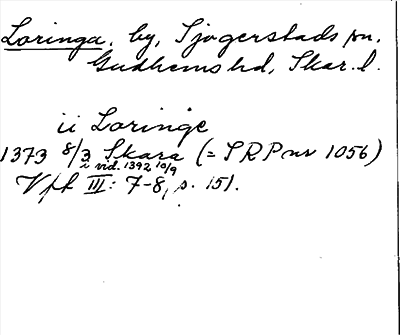 Loringa, by, Sjogerstads sn.
Gudhems hd, Skar. l.
ii Loringe
1373 8/3 Skara (= SRP nr 1056)
i vid. 1392 10/9
Vfk III: 7-8, s. 151.